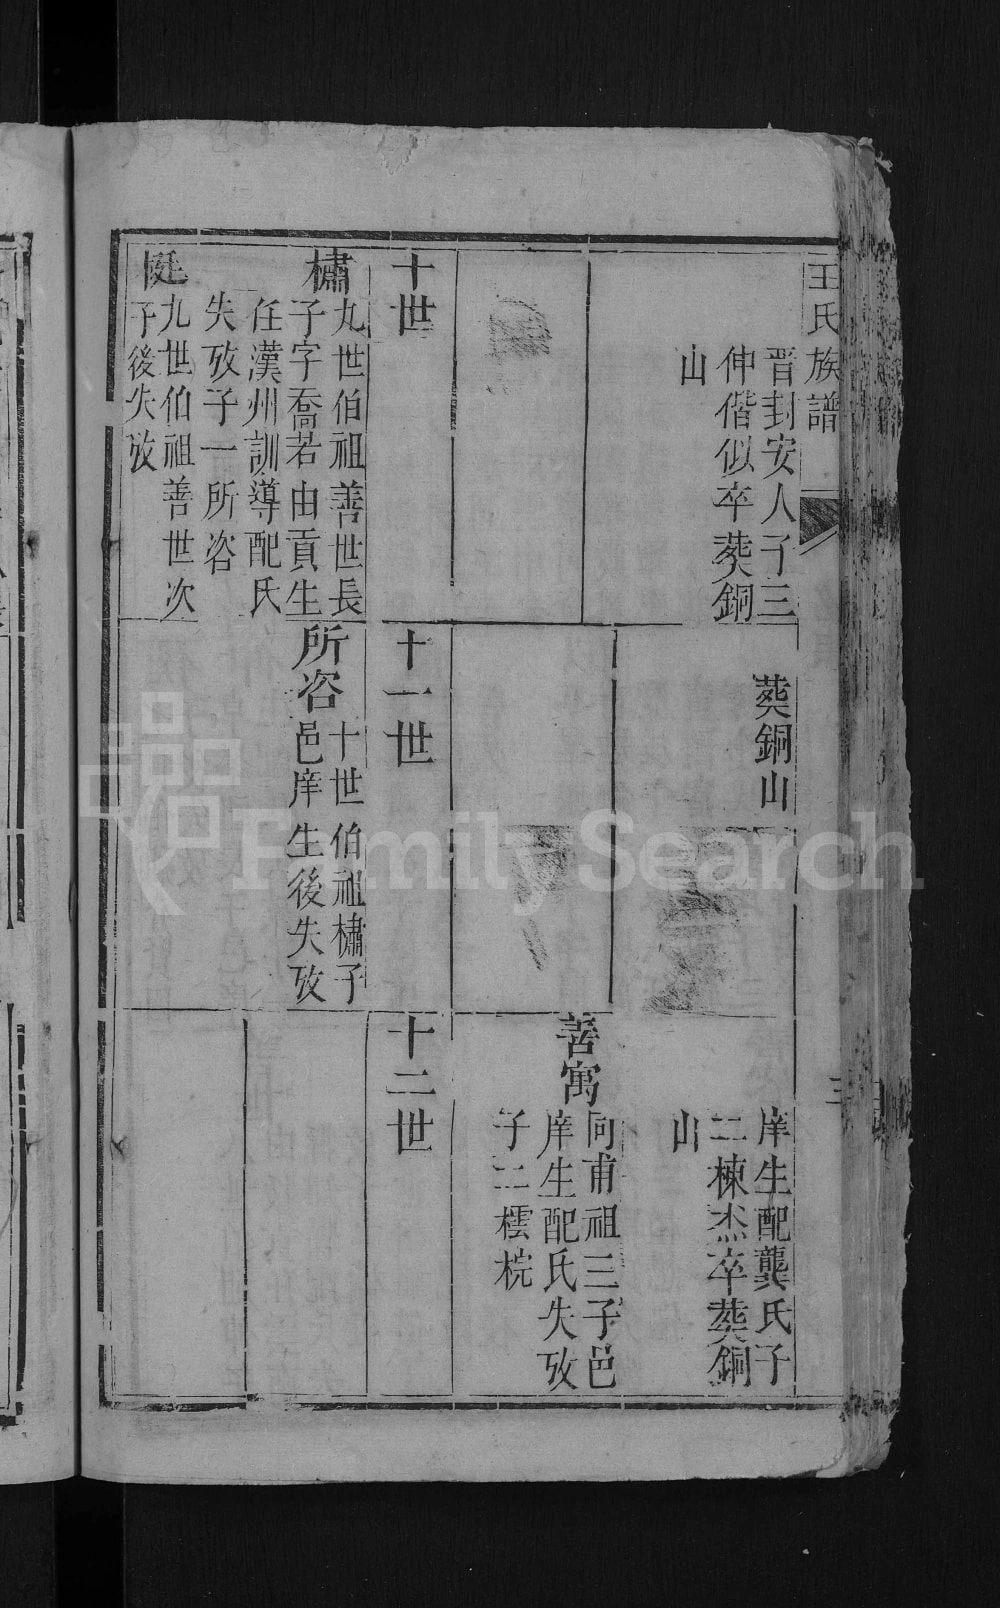 王氏族譜
三
晋封安人子三
伸偕似卒葬銅
山
葬銅山
庠生配龔氏子
二棟杰卒葬銅
山
善寓
同甫祖三子邑
庠生配氏失攷
子二橒梡
十世
十一世
十二世
橚
九世伯祖善世長
子字喬若由貢生
任漢州訓導配氏
失攷子一所咨
梃
九世伯祖善世次
子後失攷
所咨
十世伯祖橚子
邑庠生後失攷
FamilySearch